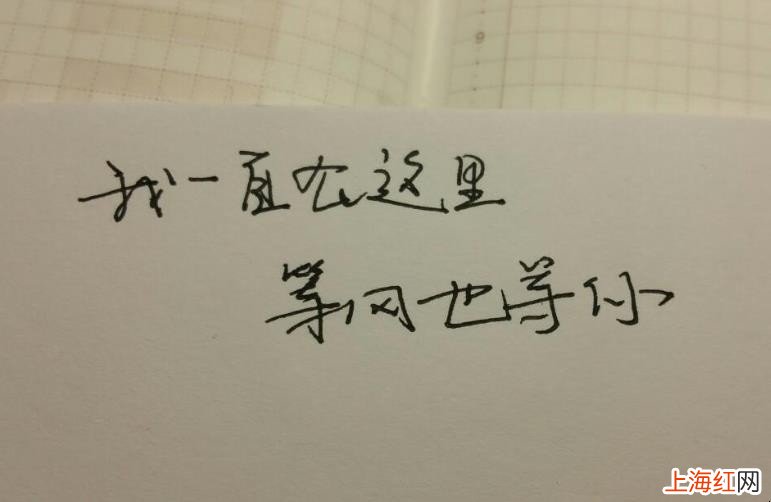 9
我一直在这里
等风也等你
上海红网